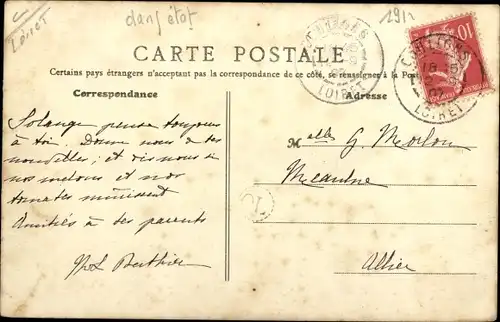 Loiret
dans état
1912
CARTE POSTALE
Certains pays étrangers n'acceptant pas la correspondance de ce côté, se renseigner à la Poste
Correspondance
Adresse
LOIRET
LOIRET
10
Solange pense toujours
à toi. Donne nous de tes
nouvelles, et dis nous si
nos melons et nos
tomates mûrissent
Amitiés à tes parents
Berthier
Melles G. Morlon
Meaulne
Allier